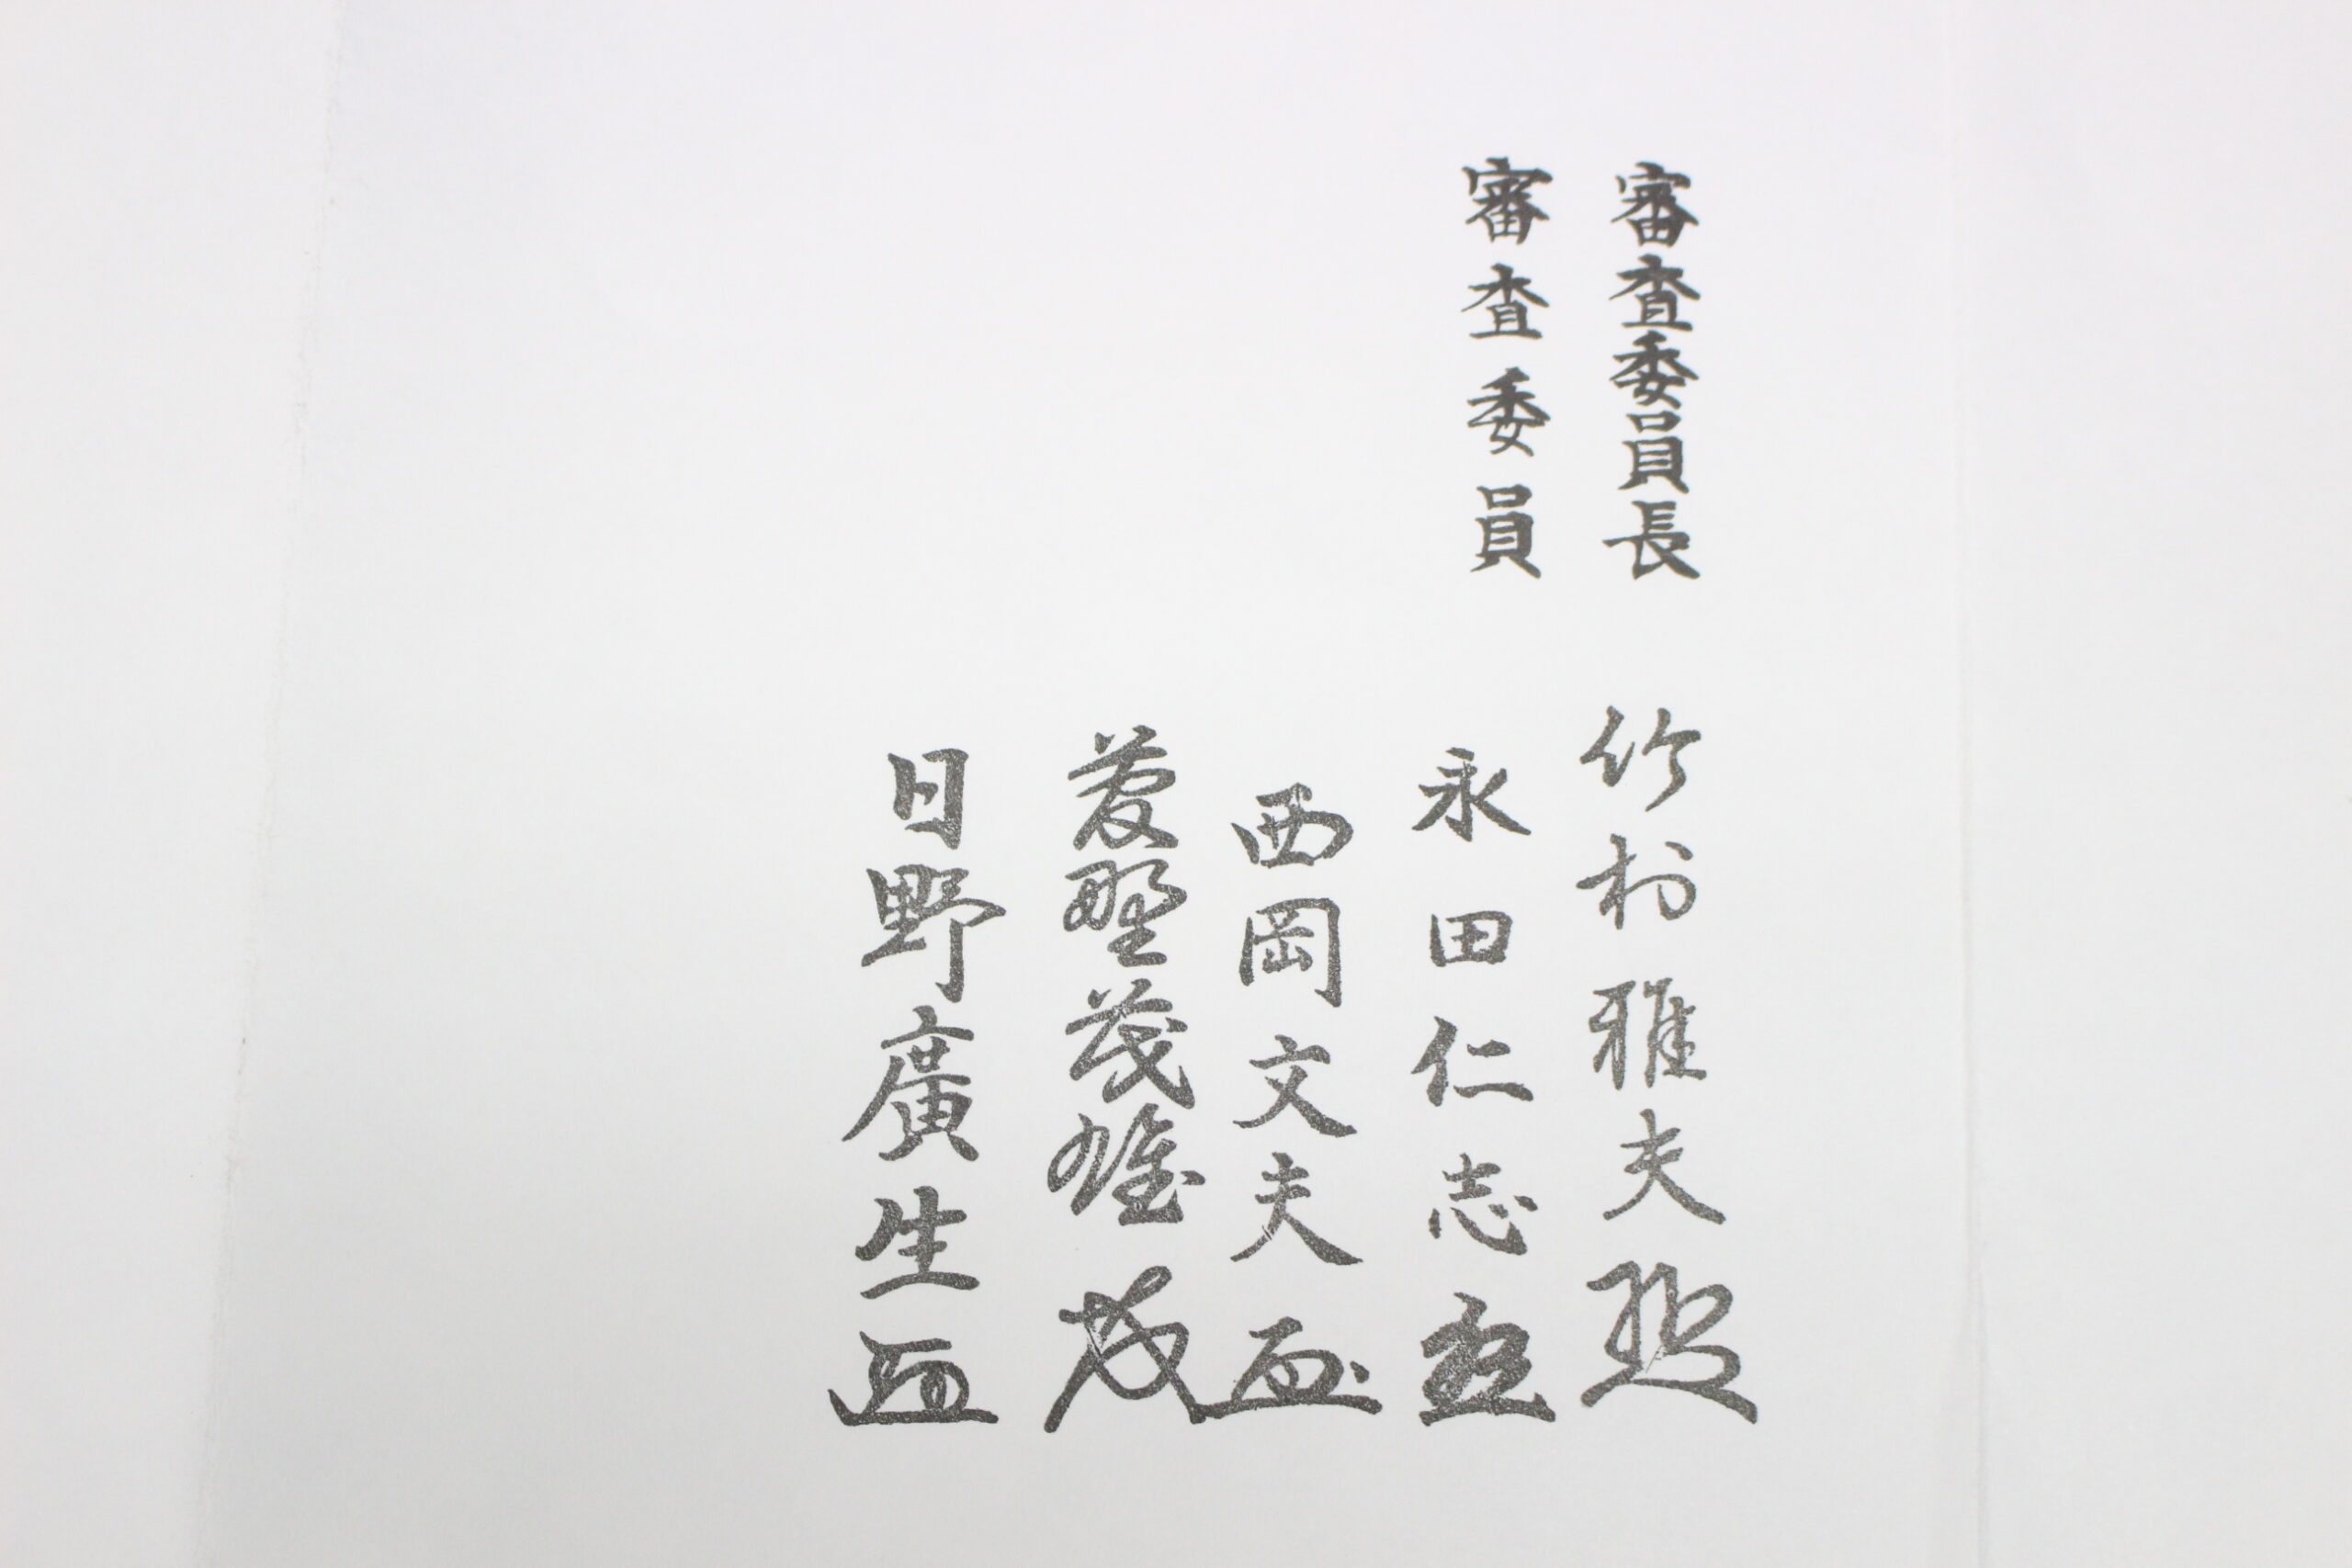 審査委員長 竹村雅夫
審査委員 永田仁志
西岡文夫
野茂雄
日野廣生